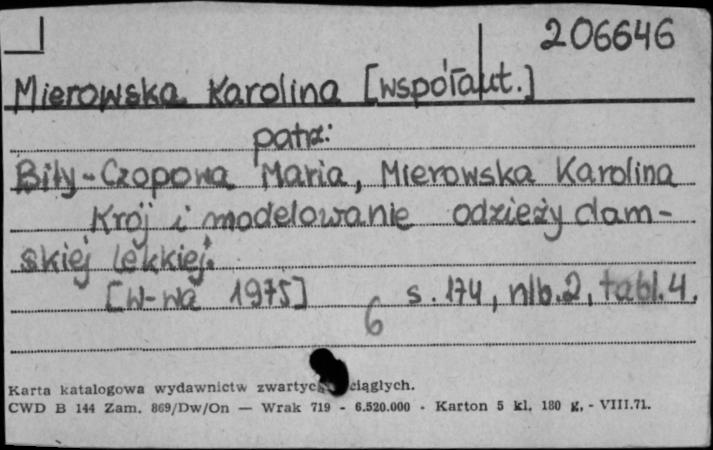 206646
Mierowska Karolina [współaut.]
patrz:
Biły-Czopowa Maria, Mierowska Karolina
Krój i modelowanie odzieży dam-
skiej lekkiej.
[W-wa 1975] s. 174, nlb. 2, tabl. 4.
6
Karta katalogowa wydawnictw ciągłych.
CWD B 144 Zam. 869/Dw/On — Wrak 719 - 6.520.000 - Karton 5 kl. 180 g. - VIII.71.